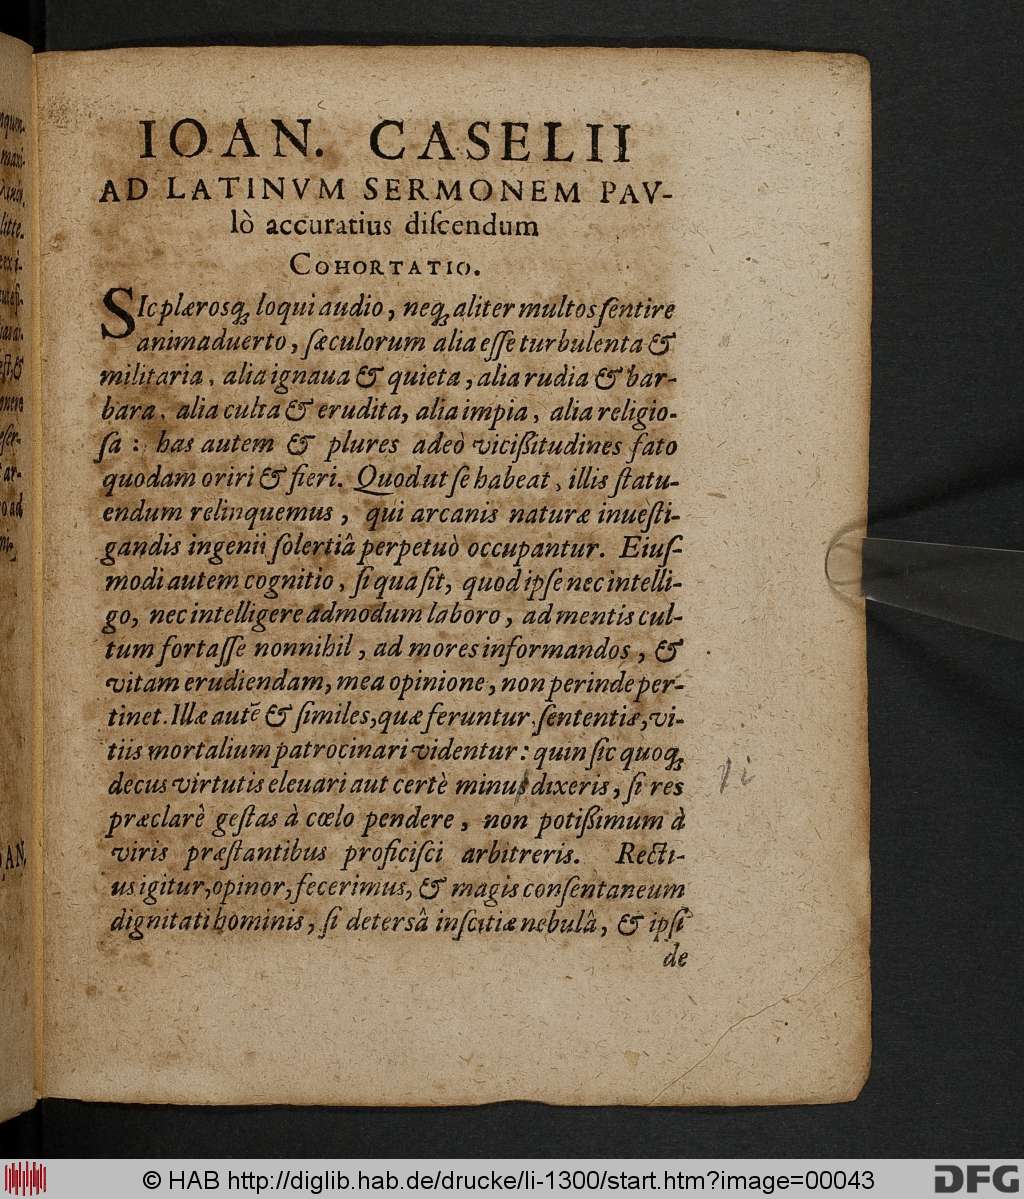 IOAN. CASELII
AD LATINVM SERMONEM PAV-
lò accuratius diſcendum
COHORTATIO.
SIc plærosq; loqui audio, neq; aliter multos ſentire
animaduerto, ſæculorum alia eſſe turbulenta &
militaria, alia ignaua & quieta, alia rudia & bar-
bara, alia culta & erudita, alia impia, alia religio-
ſa: has autem & plures adeò viciſſitudines fato
quodam oriri & fieri. Quod ut ſe habeat, illis ſtatu-
endum relinquemus, qui arcanis naturæ inueſti-
gandis ingenii ſolertiâ perpetuò occupantur. Eiuſ-
modi autem cognitio, ſi qua ſit, quod ipſe nec intelli-
go, nec intelligere admodum laboro, ad mentis cul-
tum fortaſſe nonnihil, ad mores informandos, &
vitam erudiendam, mea opinione, non perinde per-
tinet. Illæ autē & ſimiles, quæ feruntur, ſententiæ, vi-
tiis mortalium patrocinari videntur: quin ſic quoq;
decus virtutis eleuari aut certè minus dixeris, ſi res
præclarè geſtas à cœlo pendere, non potiſſimum à
viris præſtantibus proficiſci arbitreris. Recti-
us igitur, opinor, fecerimus, & magis conſentaneum
dignitati hominis, ſi detersâ inſcitiæ nebulâ, & ipſi
de
© HAB http://diglib.hab.de/drucke/li-1300/start.htm?image=00043
DFG